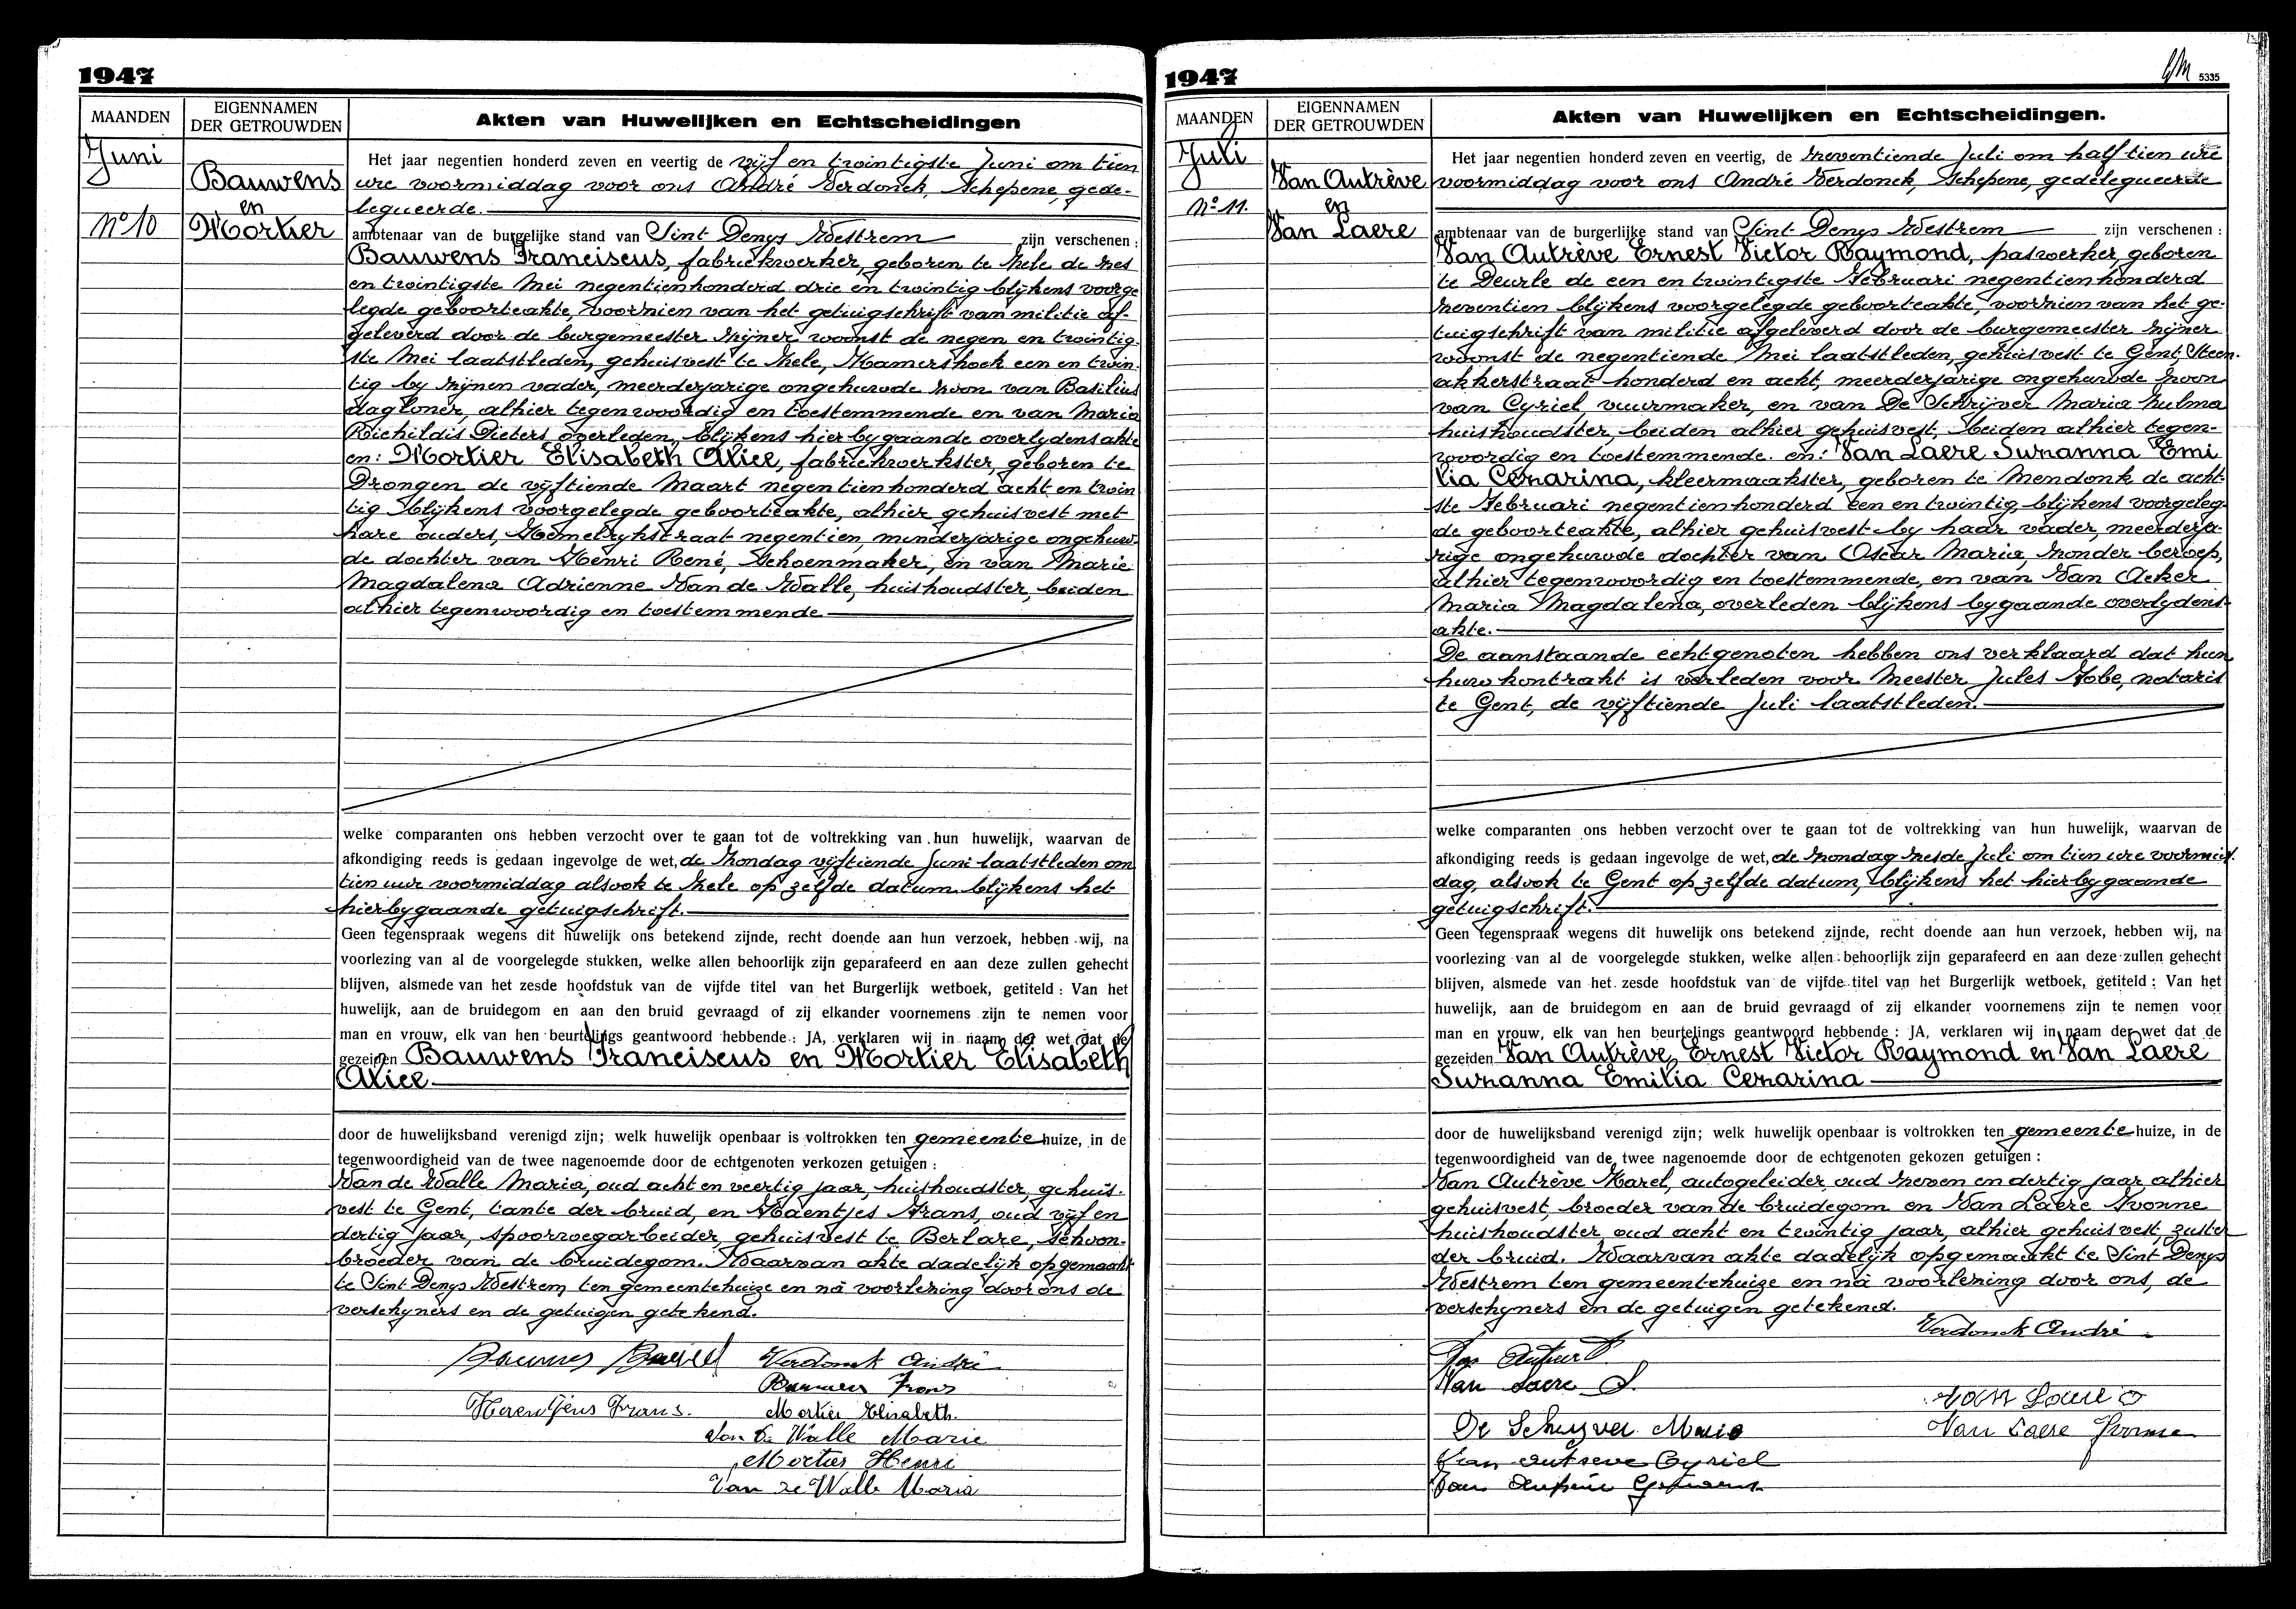 1947
MAANDEN
EIGENNAMEN
DER GETROUWDEN
Akten van Huwelijken en Echtscheidingen
Juni
Nº 10
Bauwens
en
Mortier
Het jaar negentien honderd zeven en veertig de vijf en twintigste Juni om tien
ure voormiddag voor ons André Verdonck, Schepene, gede-
legueerde.
ambtenaar van de burgelijke stand van Sint Denys Westrem zijn verschenen :
Bauwens Franciscus, fabriekwerker, geboren te Zele de zes
en twintigste Mei negentienhonderd drie en twintig blijkens voorge
legde geboorteakte, voorzien van het getuigschrift van militie af-
geleverd door de burgemeester zijner woonst de negen en twintig-
ste Mei laatstleden, gehuisvest te Zele, Kamershoek een en twin-
tig by zijnen vader, meerderjarige ongehuwde zoon van Basilius
dagloner, alhier tegenwoordig en toestemmende en van Maria
Richildis Pieters overleden, blijkens hier bygaande overlydensakte
en: Mortier Elisabeth Alice, fabriekwerkster, geboren te
Drongen de vijftiende Maart negentienhonderd acht en twin
tig blijkens voorgelegde geboorteakte, alhier gehuisvest met
hare ouders, Hemelrykstraat negentien, minderjarige ongehuw-
de dochter van Henri René, Schoenmaker, en van Marie
Magdalena Adrienne Van de Walle, huishoudster, beiden
alhier tegenwoordig en toestemmende
welke comparanten ons hebben verzocht over te gaan tot de voltrekking van hun huwelijk, waarvan de
afkondiging reeds is gedaan ingevolge de wet, de Zondag vijftiende Juni laatstleden om
tien uur voormiddag alsook te Zele op zelfde datum blijkens het
hierbygaande getuigschrift.
Geen tegenspraak wegens dit huwelijk ons betekend zijnde, recht doende aan hun verzoek, hebben wij, na
voorlezing van al de voorgelegde stukken, welke allen behoorlijk zijn geparafeerd en aan deze zullen gehecht
blijven, alsmede van het zesde hoofdstuk van de vijfde titel van het Burgerlijk wetboek, getiteld : Van het
huwelijk, aan de bruidegom en aan den bruid gevraagd of zij elkander voornemens zijn te nemen voor
man en vrouw, elk van hen beurtelings geantwoord hebbende : JA, verklaren wij in naam der wet dat de
gezeiden Bauwens Franciscus en Mortier Elisabeth
Alice
door de huwelijksband verenigd zijn; welk huwelijk openbaar is voltrokken ten gemeente huize, in de
tegenwoordigheid van de twee nagenoemde door de echtgenoten verkozen getuigen :
Van de Walle Maria, oud acht en veertig jaar, huishoudster, gehuis-
vest te Gent, tante der bruid, en Haentjes Frans, oud vijf en
dertig jaar, spoorwegarbeider, gehuisvest te Berlare, schoon-
broeder van de bruidegom. Waarvan akte dadelijk opgemaakt
te Sint Denys Westrem ten gemeentehuize en nà voorlezing door ons de
verschyners en de getuigen getekend.
Bauwens
Verdonck André
Bauwens Frans
Frans.
Mortier Elisabeth.
Van de Walle Marie
Mortier Henri
Van de Walle Maria
1947
5335
MAANDEN
EIGENNAMEN
DER GETROUWDEN
Akten van Huwelijken en Echtscheidingen.
Juli
Nº 11.
Van Autrève
en
Van Laere
Het jaar negentien honderd zeven en veertig, de zeventiende Juli om half tien ure
voormiddag voor ons André Verdonck, Schepene, gedelegueerde
ambtenaar van de burgerlijke stand van Sint Denys Westrem zijn verschenen :
Van Autrève Ernest Victor Raymond, paswerker, geboren
te Deurle de een en twintigste Februari negentienhonderd
zeventien blijkens voorgelegde geboorteakte, voorzien van het ge-
tuigschrift van militie afgeleverd door de burgemeester zijner
woonst de negentiende Mei laatstleden, gehuisvest te Gent, Steen-
akkerstraat honderd en acht, meerderjarige ongehuwde zoon
van Cyriel, vuurmaker, en van De Schrijver Maria Zulma
huishoudster, beiden alhier gehuisvest, beiden alhier tegen-
woordig en toestemmende. en: Van Laere Suzanna Emi
lia Cezarina, kleermaakster, geboren te Mendonk de acht-
ste Februari negentienhonderd een en twintig, blijkens voorgeleg-
de geboorteakte, alhier gehuisvest by haar vader, meerderja-
rige ongehuwde dochter van Oscar Maria, zonder beroep,
alhier tegenwoordig en toestemmende, en van Van Acker
Maria Magdalena, overleden blijkens bygaande overlydens-
akte.
De aanstaande echtgenoten hebben ons verklaard dat hun
huwkontrakt is verleden voor Meester Jules Fobe, notaris
te Gent, de vijftiende Juli laatstleden.
welke comparanten ons hebben verzocht over te gaan tot de voltrekking van hun huwelijk, waarvan de
afkondiging reeds is gedaan ingevolge de wet, de Zondag zesde Juli om tien ure voormid-
dag, alsook te Gent op zelfde datum, blijkens het hierbygaande
getuigschrift.
Geen tegenspraak wegens dit huwelijk ons betekend zijnde, recht doende aan hun verzoek, hebben wij, na
voorlezing van al de voorgelegde stukken, welke allen behoorlijk zijn geparafeerd en aan deze zullen gehecht
blijven, alsmede van het zesde hoofdstuk van de vijfde titel van het Burgerlijk wetboek, getiteld : Van het
huwelijk, aan de bruidegom en aan de bruid gevraagd of zij elkander voornemens zijn te nemen voor
man en vrouw, elk van hen beurtelings geantwoord hebbende : JA, verklaren wij in naam der wet dat de
gezeiden Van Autrève, Ernest Victor Raymond en Van Laere
Suzanna Emilia Cezarina
door de huwelijksband verenigd zijn; welk huwelijk openbaar is voltrokken ten gemeente huize, in de
tegenwoordigheid van de twee nagenoemde door de echtgenoten gekozen getuigen :
Van Autrève Karel, autogeleider, oud zeven en dertig jaar alhier
gehuisvest, broeder van de bruidegom en Van Laere Yvonne
huishoudster, oud acht en twintig jaar, alhier gehuisvest, zuster
der bruid. Waarvan akte dadelijk opgemaakt te Sint Denys
Westrem ten gemeentehuize en nà voorlezing door ons, de
verschyners en de getuigen getekend.
Verdonck André
Van Laere S.
Van Laere O
De Schryver Maria
Van Laere Yvonne
Van Autreve Cyriel